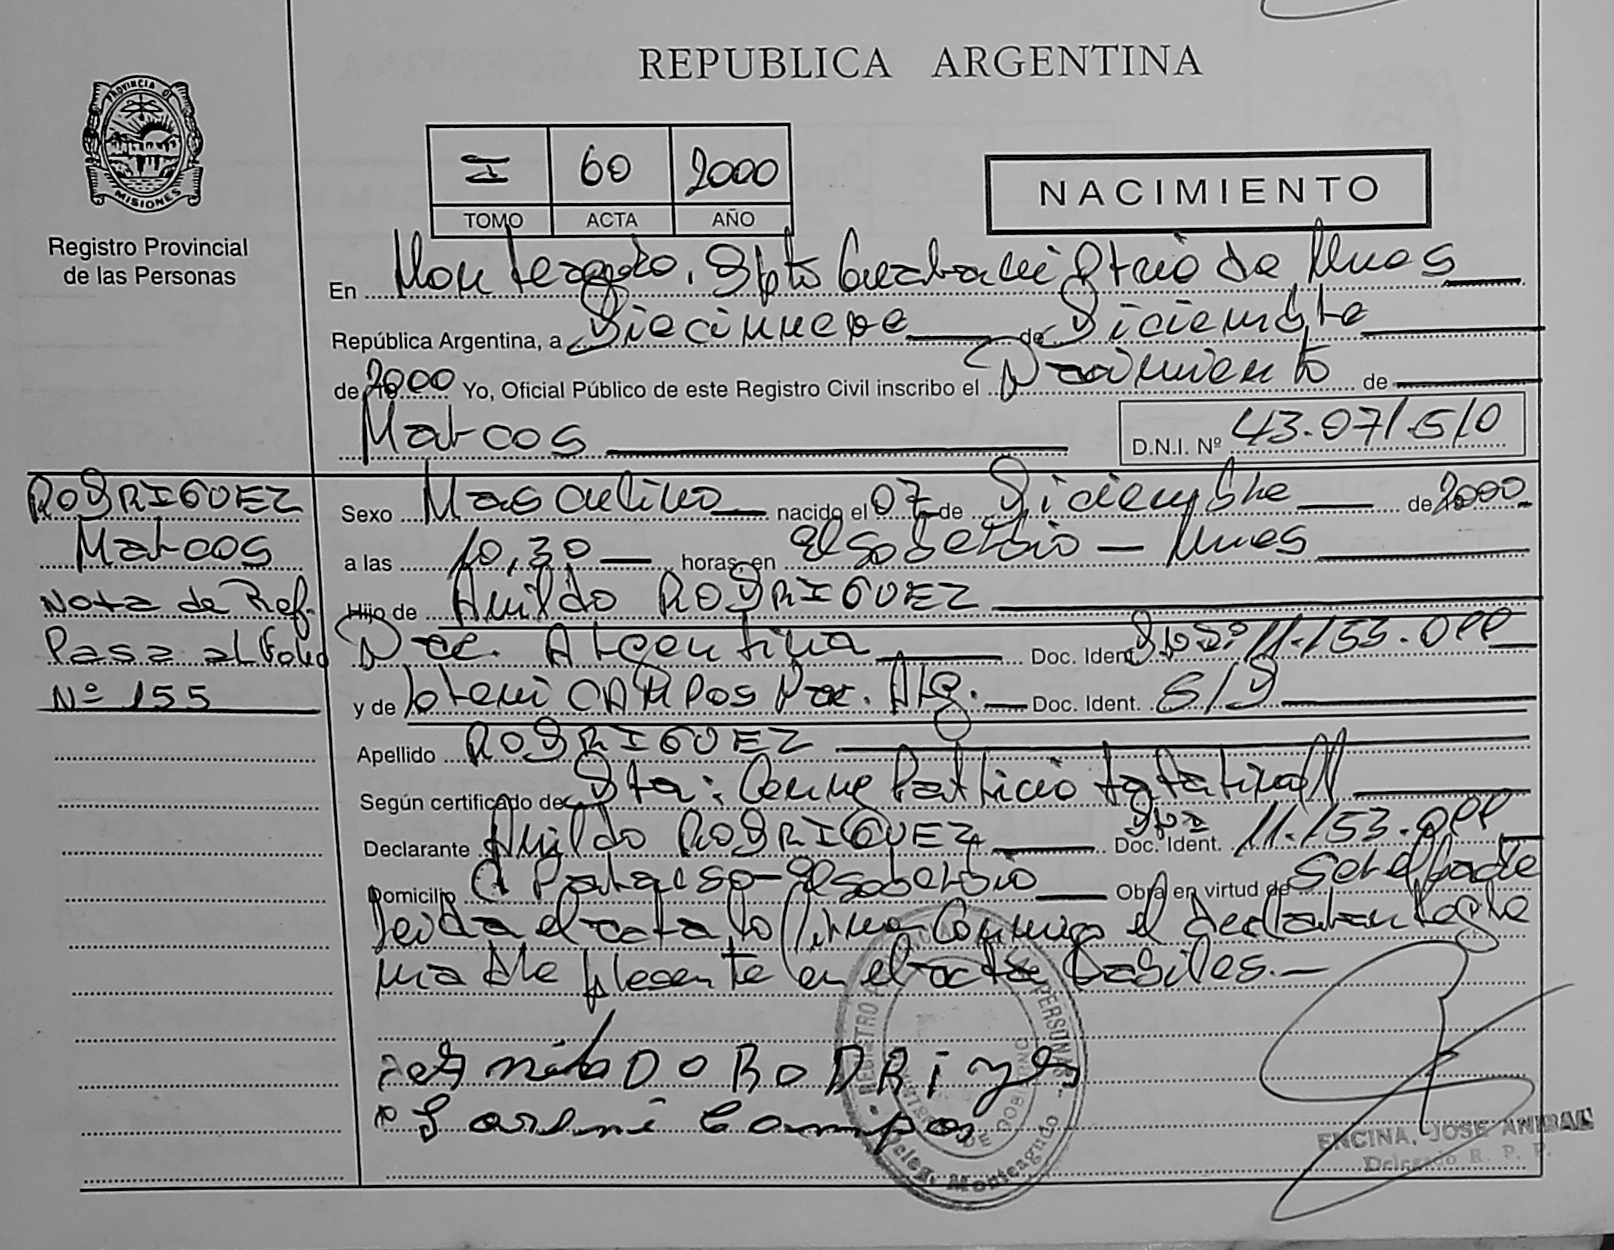 REPUBLICA ARGENTINA
PROVINCIA DE
MISIONES
Registro Provincial
de las Personas
I 60 2000
TOMO ACTA AÑO
NACIMIENTO
En Monteagudo, Dpto Guarani Prcio de Mnes
República Argentina, a Diecinueve de Diciembre
de 2000 Yo, Oficial Público de este Registro Civil inscribo el Nacimiento de
Marcos
D.N.I. Nº 43.071.510
RODRIGUEZ
Marcos
Nota de Ref.
Pasa al Folio
Nº 155
Sexo Masculino nacido el 07 de Diciembre de 2000
a las 10,30 horas en El Soberbio – Mnes
Hijo de Anildo RODRIGUEZ
Nac. Argentina Doc. Ident. 11.153.
y de CAMPOS Nac. Arg. Doc. Ident. S/D
Apellido RODRIGUEZ
Según certificado de Dra:
Declarante Anildo RODRIGUEZ Doc. Ident. 11.153.
Domicilio Paraiso – El Soberbio Obra en virtud de Ser el padre
Leida el acta la firma Conmigo el declarante y la
madre presente en el acta
RODRi
Campos
REGISTRO PERSONAS
MINISTERIO DE GOBIERNO
Deleg. Monteagudo
ENCINA, JOSE ANIBAL
Delegado R. P. P.